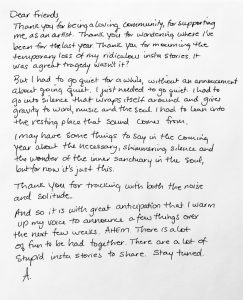 Dear friends,
Thank you for being a loving community, for supporting
me, as an artist. Thank you for wondering where I've
been for the last year. Thank you for mourning the
temporary loss of my ridiculous insta stories. It
was a great tragedy wasn't it?
But I had to go quiet for a while, without an announcement
about going quiet. I just needed to go quiet. I had to
go into silence that wraps itself around and gives
gravity to word, music, and the soul. I had to lean into
the resting place that sound comes from.
I may have some things to say in the coming
year about the necessary, shimmering silence and
the wonder of the inner sanctuary in the soul,
but for now it's just this.
Thank you for tracking with both the noise
and solitude.
And so it is with great anticipation that I warm
up my voice to announce a few things over
the next few weeks. Ahem. There is a lot
of fun to be had together. There are a lot of
stupid insta stories to share. Stay tuned.
A.